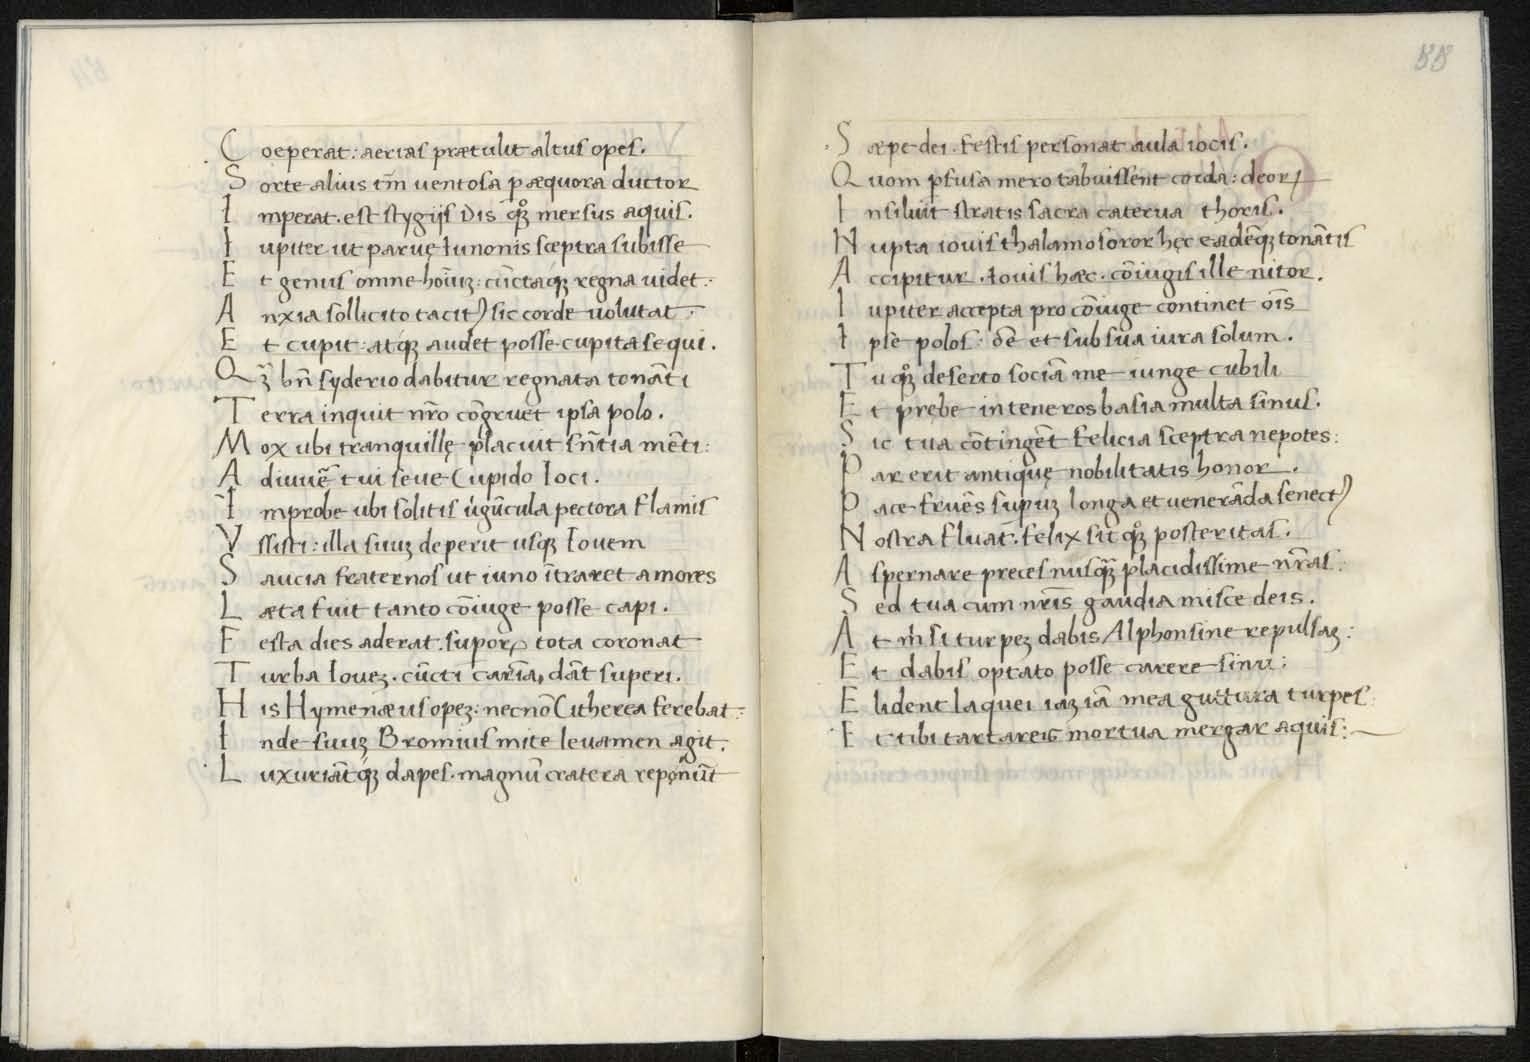 Coeperat: aerias prætulit altus opes.
Sorte alius tm̄ uentosa p æquora ductor
Imperat. est stygijs Dis q̊ꝫ mersus aquis.
Iupiter ut paruę Iunonis sceptra subisse
Et genus omne hoı̄uꝫ: cūctaqꝫ regna uidet.
Anxia sollicito tacitꝰ sic corde uolutat.
Et cupit: atqꝫ audet posse cupita sequi.
Qꝫ̄ bn̄ syderio dabitur regnata tonāti
Terra inquit nr̄o cōgruet ipsa polo.
Mox ubi tranquillę placuit sn̄tia mēti:
Adiuuē tui seue Cupido Ioci.
Improbe ubi solitis úgūcula pectora flamis
Vssisti: illa suuꝫ deperit usqꝫ Iouem
Saucia fraternos ut iuno ītraret amores
Læta fuit tanto cōiuge posse capi.
Festa dies aderat. supoꝝ tota coronat
Turba Ioueꝫ. cūcti dāt superi.
His Hymenæus opeꝫ: necnō Citherea ferebat:
Inde suuꝫ Bromius mite leuamen agit.
Luxuriāt qꝫ dapes. magnū cratera reponūt
55
Sæpe dei. festis personat aula iocis.
Quom pfusa mero tabuissent corda: deoꝝ
Insiluit stratis sacra caterua thoris.
Nupta iouis thalamo soror hęc eadēqꝫ tonātis
Accipitur. Iouis hæc. cōiugis ille nitor.
Iupiter accepta pro cōiuge continet oı̄s
Ipse polos: dē et sub sua iura solum.
Tu q̊ꝫ deserto sociā me iunge cubili
Et prębe in teneros basia multa sinus.
Sic tua cōtingēt felicia sceptra nepotes:
Par erit antiquę nobilitatis honor.
Pace fruēs supuꝫ longa et uenerāda senectꝰ
Nostra fluat. felix sit q̊ꝫ posteritas.
Aspernare preces nusqꝫ̄ placidissime nr̄as.
Sed tua cum nr̄is gaudia misce deis.
At m̄ si turpeꝫ dabis Alphonsine repulsaꝫ:
Et dabis optato posse carere sinu:
Elident laquei iaꝫ iā mea guttura turpes
Et tibi tartareis mortua mergar aquis: